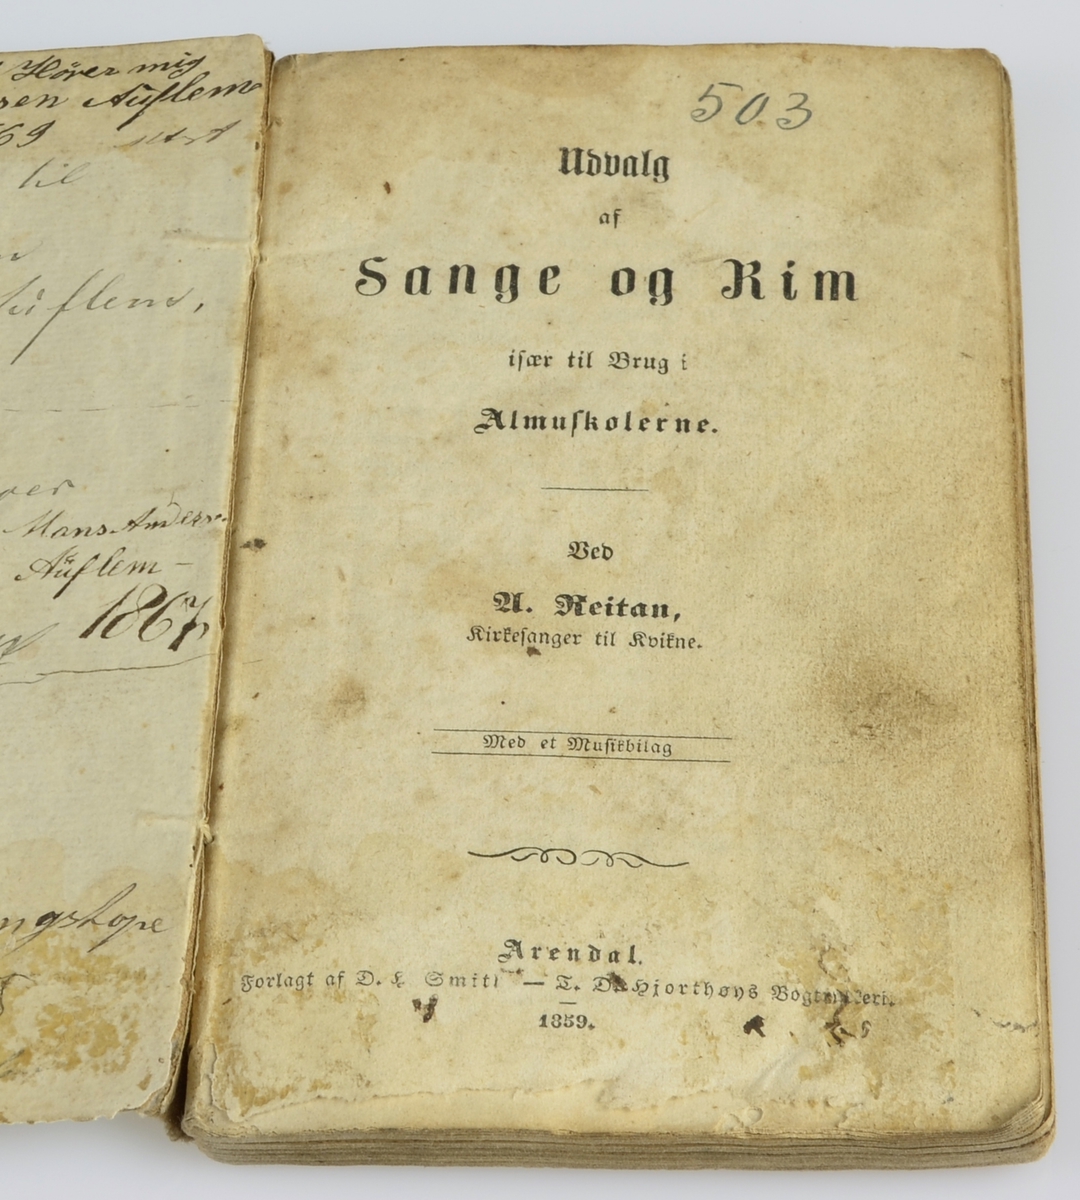 Hører mig
sen Aüflem
69
til
Aüflem,
Hans Anders
Aüflem –
1867
503
Udvalg
af
Sange og Rim
især til Brug i
Almuskolerne.
Ved
A. Reitan,
Kirkesanger til Kvikne.
Med et Musikbilag
Arendal.
Forlagt af D. L. Smith — T. D. Hjorthøys
1859.